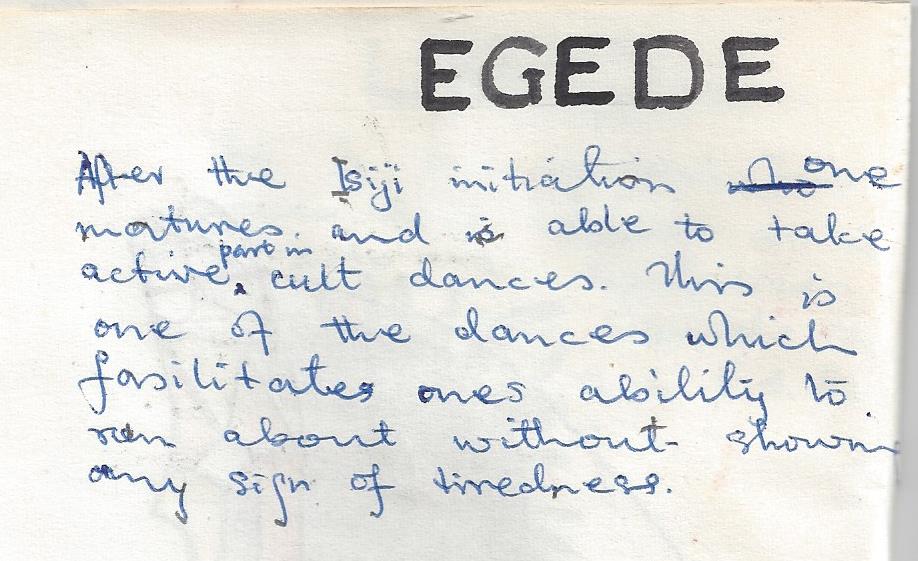 EGEDE
After the Isiji initiation one
matures. and is able to take
active part in cult dances. This is
one of the dances which
fasilitates ones ability to
run about without showin
any sign of tiredness.